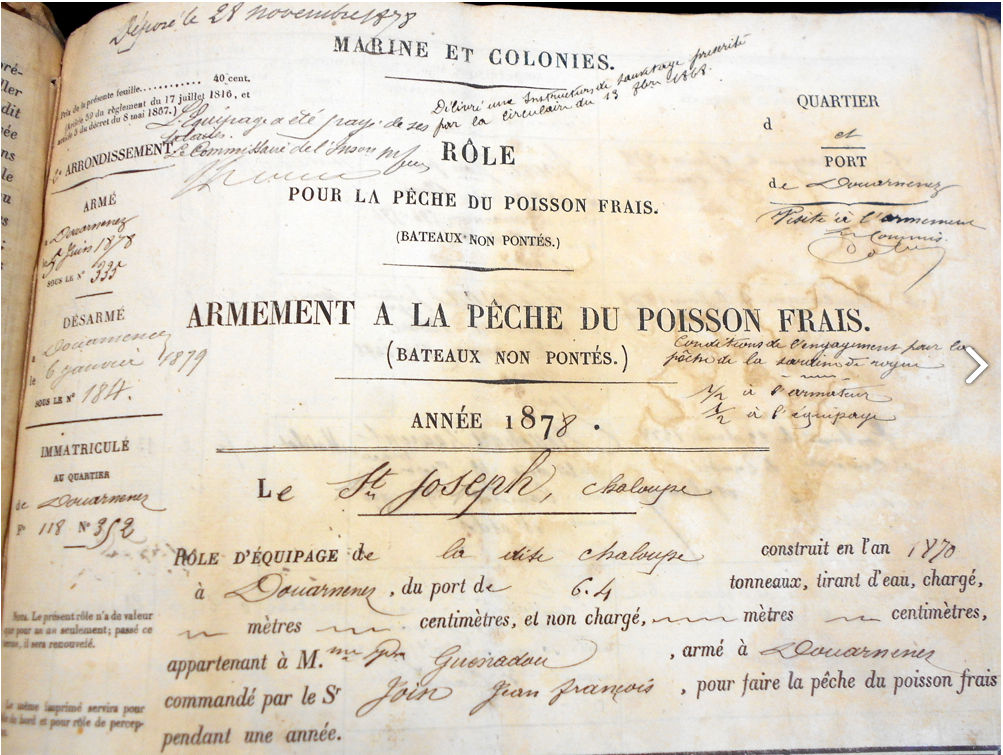 le 28 novembre 1878
MARINE ET COLONIES.
Prix de la présente feuille........... 40 cent.
(Article 39 du règlement du 17 juillet 1816, et
article 3 du décret du 8 mai 1867.)
Délivré une Instruction de sauvetage prescrite
par la circulaire du 13 1868.
L'Equipage a été payé de ses
salaires.
Le Commissaire de l'Inson mse
ARRONDISSEMENT.
QUARTIER
d
et
PORT
de Douarnenez
Visité à l'armement
Le Commis.
RÔLE
POUR LA PÊCHE DU POISSON FRAIS.
(BATEAUX NON PONTÉS.)
ARMÉ
à Douarnenez
le 5 Juin 1878
SOUS LE N° 335
DÉSARMÉ
à Douarnenez
le 6 janvier 1879
SOUS LE N° 184.
IMMATRICULÉ
AU QUARTIER
de Douarnenez
F° 118 N° 352
ARMEMENT A LA PÊCHE DU POISSON FRAIS.
(BATEAUX NON PONTÉS.)
Conditions de l'engagement pour la
pêche de la sardine de rogue
1/2 à l'armateur
1/2 à l'équipage
ANNÉE 1878.
Le St Joseph, chaloupe
RÔLE D'ÉQUIPAGE de la dite chaloupe construit en l'an 1870
à Douarnenez, du port de 6.4 tonneaux, tirant d'eau, chargé,
mètres centimètres, et non chargé, mètres centimètres,
appartenant à M. me Guenadou, armé à Douarnenez
commandé par le Sr Join Jean françois, pour faire la pêche du poisson frais
pendant une année.
NOTA. Le présent rôle n'a de valeur
que pour un an seulement; passé ce
terme, il sera renouvelé.
Le même imprimé servira pour
rôle de bord et pour rôle de percep-